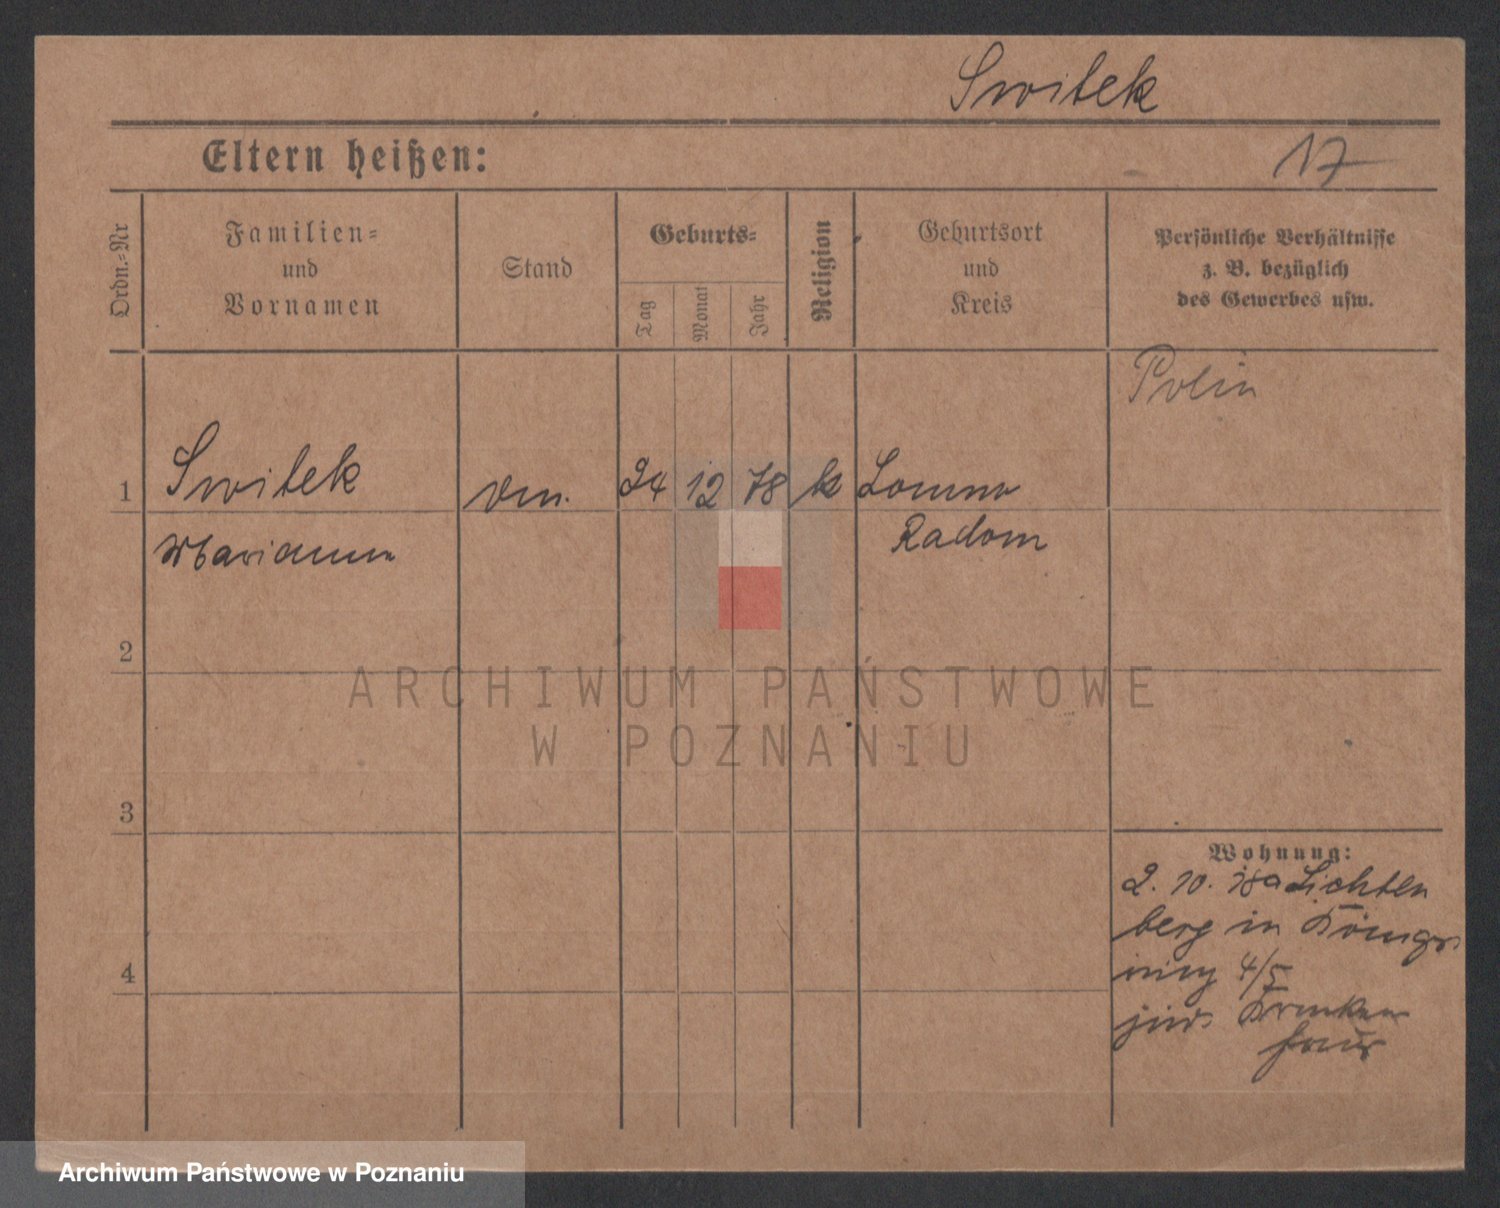 Switek
Eltern heißen:
17
Ordn.-Nr
Familien-
und
Vornamen
Stand
Geburts-
Tag
Monat
Jahr
Religion
Geburtsort
und
Kreis
Persönliche Verhältnisse
z. B. bezüglich
des Gewerbes usw.
Polin
1 Switek 24 12 78 k
Marianna Radom
2
3
4
Wohnung:
2. 10. Lichten
berg in Königs
4/5
jüd. Kranken
haus
ARCHIWUM PAŃSTWOWE
W POZNANIU
Archiwum Państwowe w Poznaniu